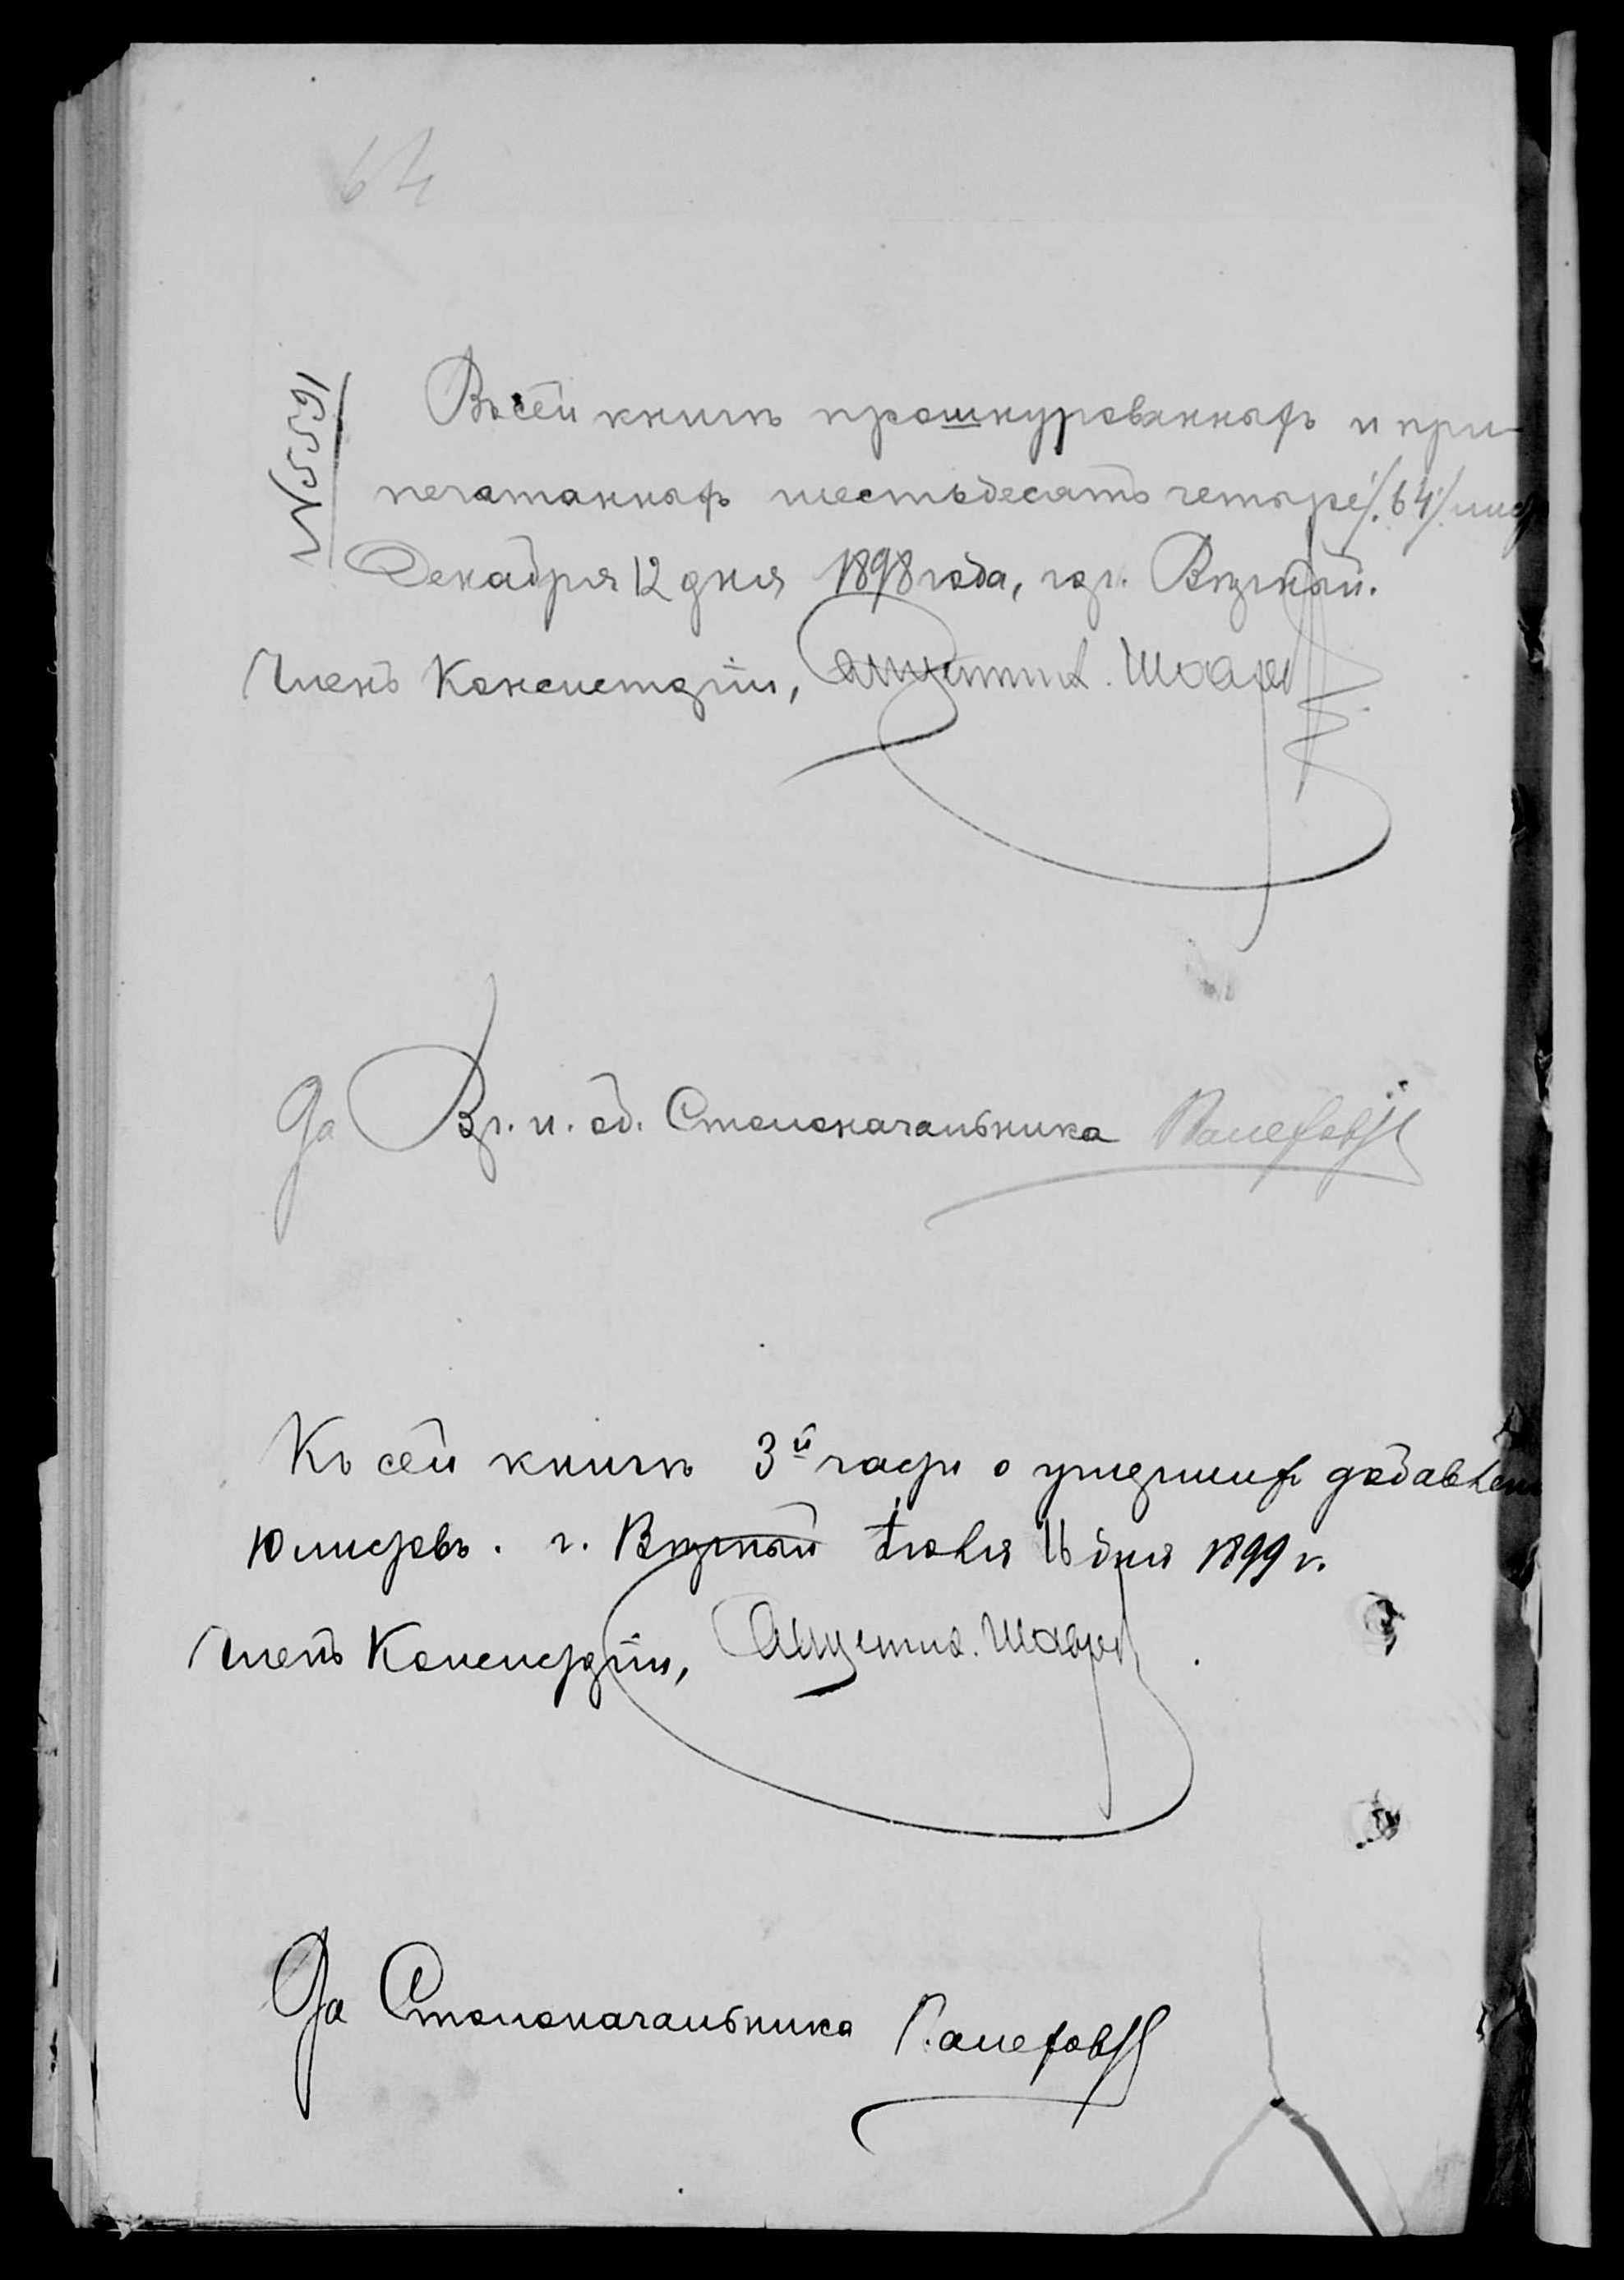 64
№ 5591
Въ сей книгѣ прошнурованныхъ и при-
печатанныхъ шестьдесятъ четыре /.64/.
Декабря 12 дня 1898 года, гор. Вятка.
Членъ Консисторіи,
За Вр. и. об. Столоначальника
Къ сей книгѣ 3й части о умершихъ добавлено
10 листовъ. г. Вятка Іюля 16 дня 1899 г.
Членъ Консисторіи,
За Столоначальника